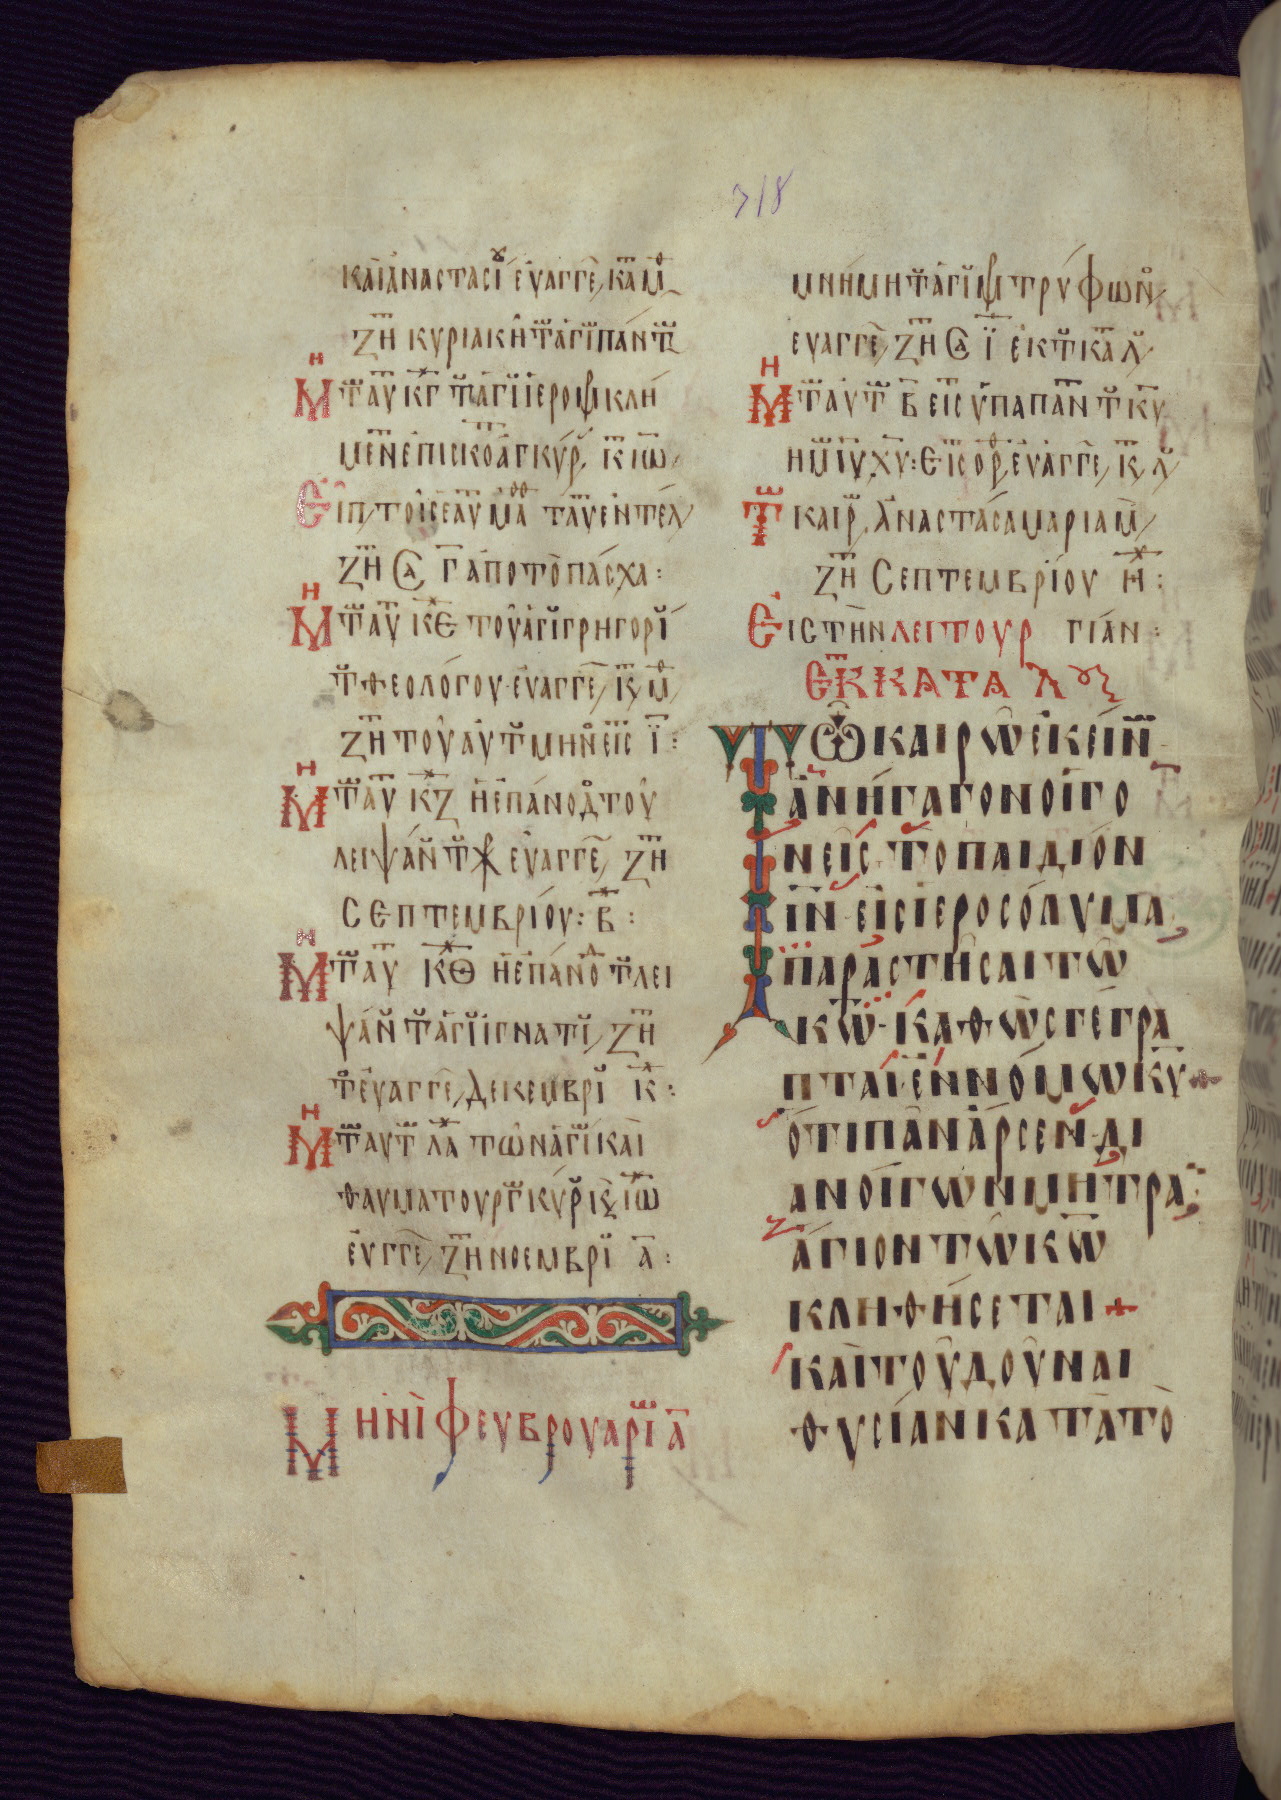 318
ΚΑῚ ἈΝΑΣΤΑΣΙ ΕΥΑΓΓΕ ΚΑ Μ
ΖΗ ΚΥΡΙΑΚΗ Τ ΑΓΙ ΠΑΝΤ
ΜΗ Τ ΑΥ ΚΓ Τ ΑΓΙ ΙΕΡΟΜ ΚΛΗ
ΜΕΝ ΕΠΙΣΚΟ ΑΓΚΥΡ Κ ΙΩ
ΕΙΠ ΤΟΙΣ ΕΑΥ ΜΑ ΤΑΥ ΕΝΤΕΛ
ΖΗ ΣΑ Γ ΑΠΟ ΤΟ ΠΑΣΧΑ :
ΜΗ Τ ΑΥ ΚΕ ΤΟΥ ΑΓΙ ΓΡΗΓΟΡΙ
Τ ΘΕΟΛΟΓΟΥ ΕΥΑΓΓΕ Κ Μ
ΖΗ ΤΟΥ ΑΥΤ ΜΗΝ ΕΙΣ Ι :
ΜΗ Τ ΑΥ ΚΖ Η ΕΠΑΝΟΔ ΤΟΥ
ΛΕΙΨΑΝ Τ ΧΡ ΕΥΑΓΓΕ ΖΗ
ΣΕΠΤΕΜΒΡΙΟΥ : Β :
ΜΗ Τ ΑΥ ΚΘ Η ΕΠΑΝΟ Τ ΛΕΙ
ΨΑΝ Τ ΑΓΙ ΙΓΝΑΤΙ ΖΗ
Τ ΕΥΑΓΓΕ ΔΕΚΕΜΒΡΙ Κ :
ΜΗ Τ ΑΥΤ ΛΑ ΤΩΝ ΑΓΙ ΚΑΙ
ΘΑΥΜΑΤΟΥΡΓ ΚΥΡ Κ ΙΩ
ΕΥΓΓΕ ΖΗ ΝΟΕΜΒΡΙ Α :
ΜΗΝῚ ΦΕΥΒΡΟΥΑΡΙ Α
ΜΝΗΜΗ Τ ΑΓΙ Μ ΤΡΥΦΩΝ
ΕΥΑΓΓΕ ΖΗ ΣΑ Ι ΕΚ Τ ΚΑ Λ
ΜΗ Τ ΑΥΤ Β ΕΙΣ ΥΠΑΠΑΝΤ ΚΥ
ΗΜ ΙΥ ΧΥ : ΕΙΣ ΟΡ ΕΥΑΓΓΕ Κ Λ
Τ ΚΑΙΡ ΑΝΑΣΤΑΣΑ ΜΑΡΙΑΜ
ΖΗ ΣΕΠΤΕΜΒΡΙΟΥ Η :
ΕΙΣ ΤΗΝ ΛΕΙΤΟΥΡΓΙΑΝ :
ΕΚ ΚΑΤΑ Λ
ΤΩ ΚΑΙΡΩ ΕΚΕΙΝ
ΑΝΗΓΑΓΟΝ ΟΙ ΓΟ
ΝΕΙΣ ΤΟ ΠΑΙΔΙΟΝ
ΙΝ ΕΙΣ ΙΕΡΟΣΟΛΥΜΑ
ΠΑΡΑΣΤΗΣΑΙ ΤΩ
ΚΩ · ΚΑΘΩΣ ΓΕΓΡΑ
ΠΤΑΙ ΕΝ ΝΟΜΩ ΚΥ +
ΟΤΙ ΠΑΝ ΑΡΣΕΝ ΔΙ
ΑΝΟΙΓΩΝ ΜΗΤΡΑ
ΑΓΙΟΝ ΤΩ ΚΩ
ΚΛΗΘΗΣΕΤΑΙ +
ΚΑΙ ΤΟΥ ΔΟΥΝΑΙ
ΘΥΣΙΑΝ ΚΑΤΑ ΤΟ